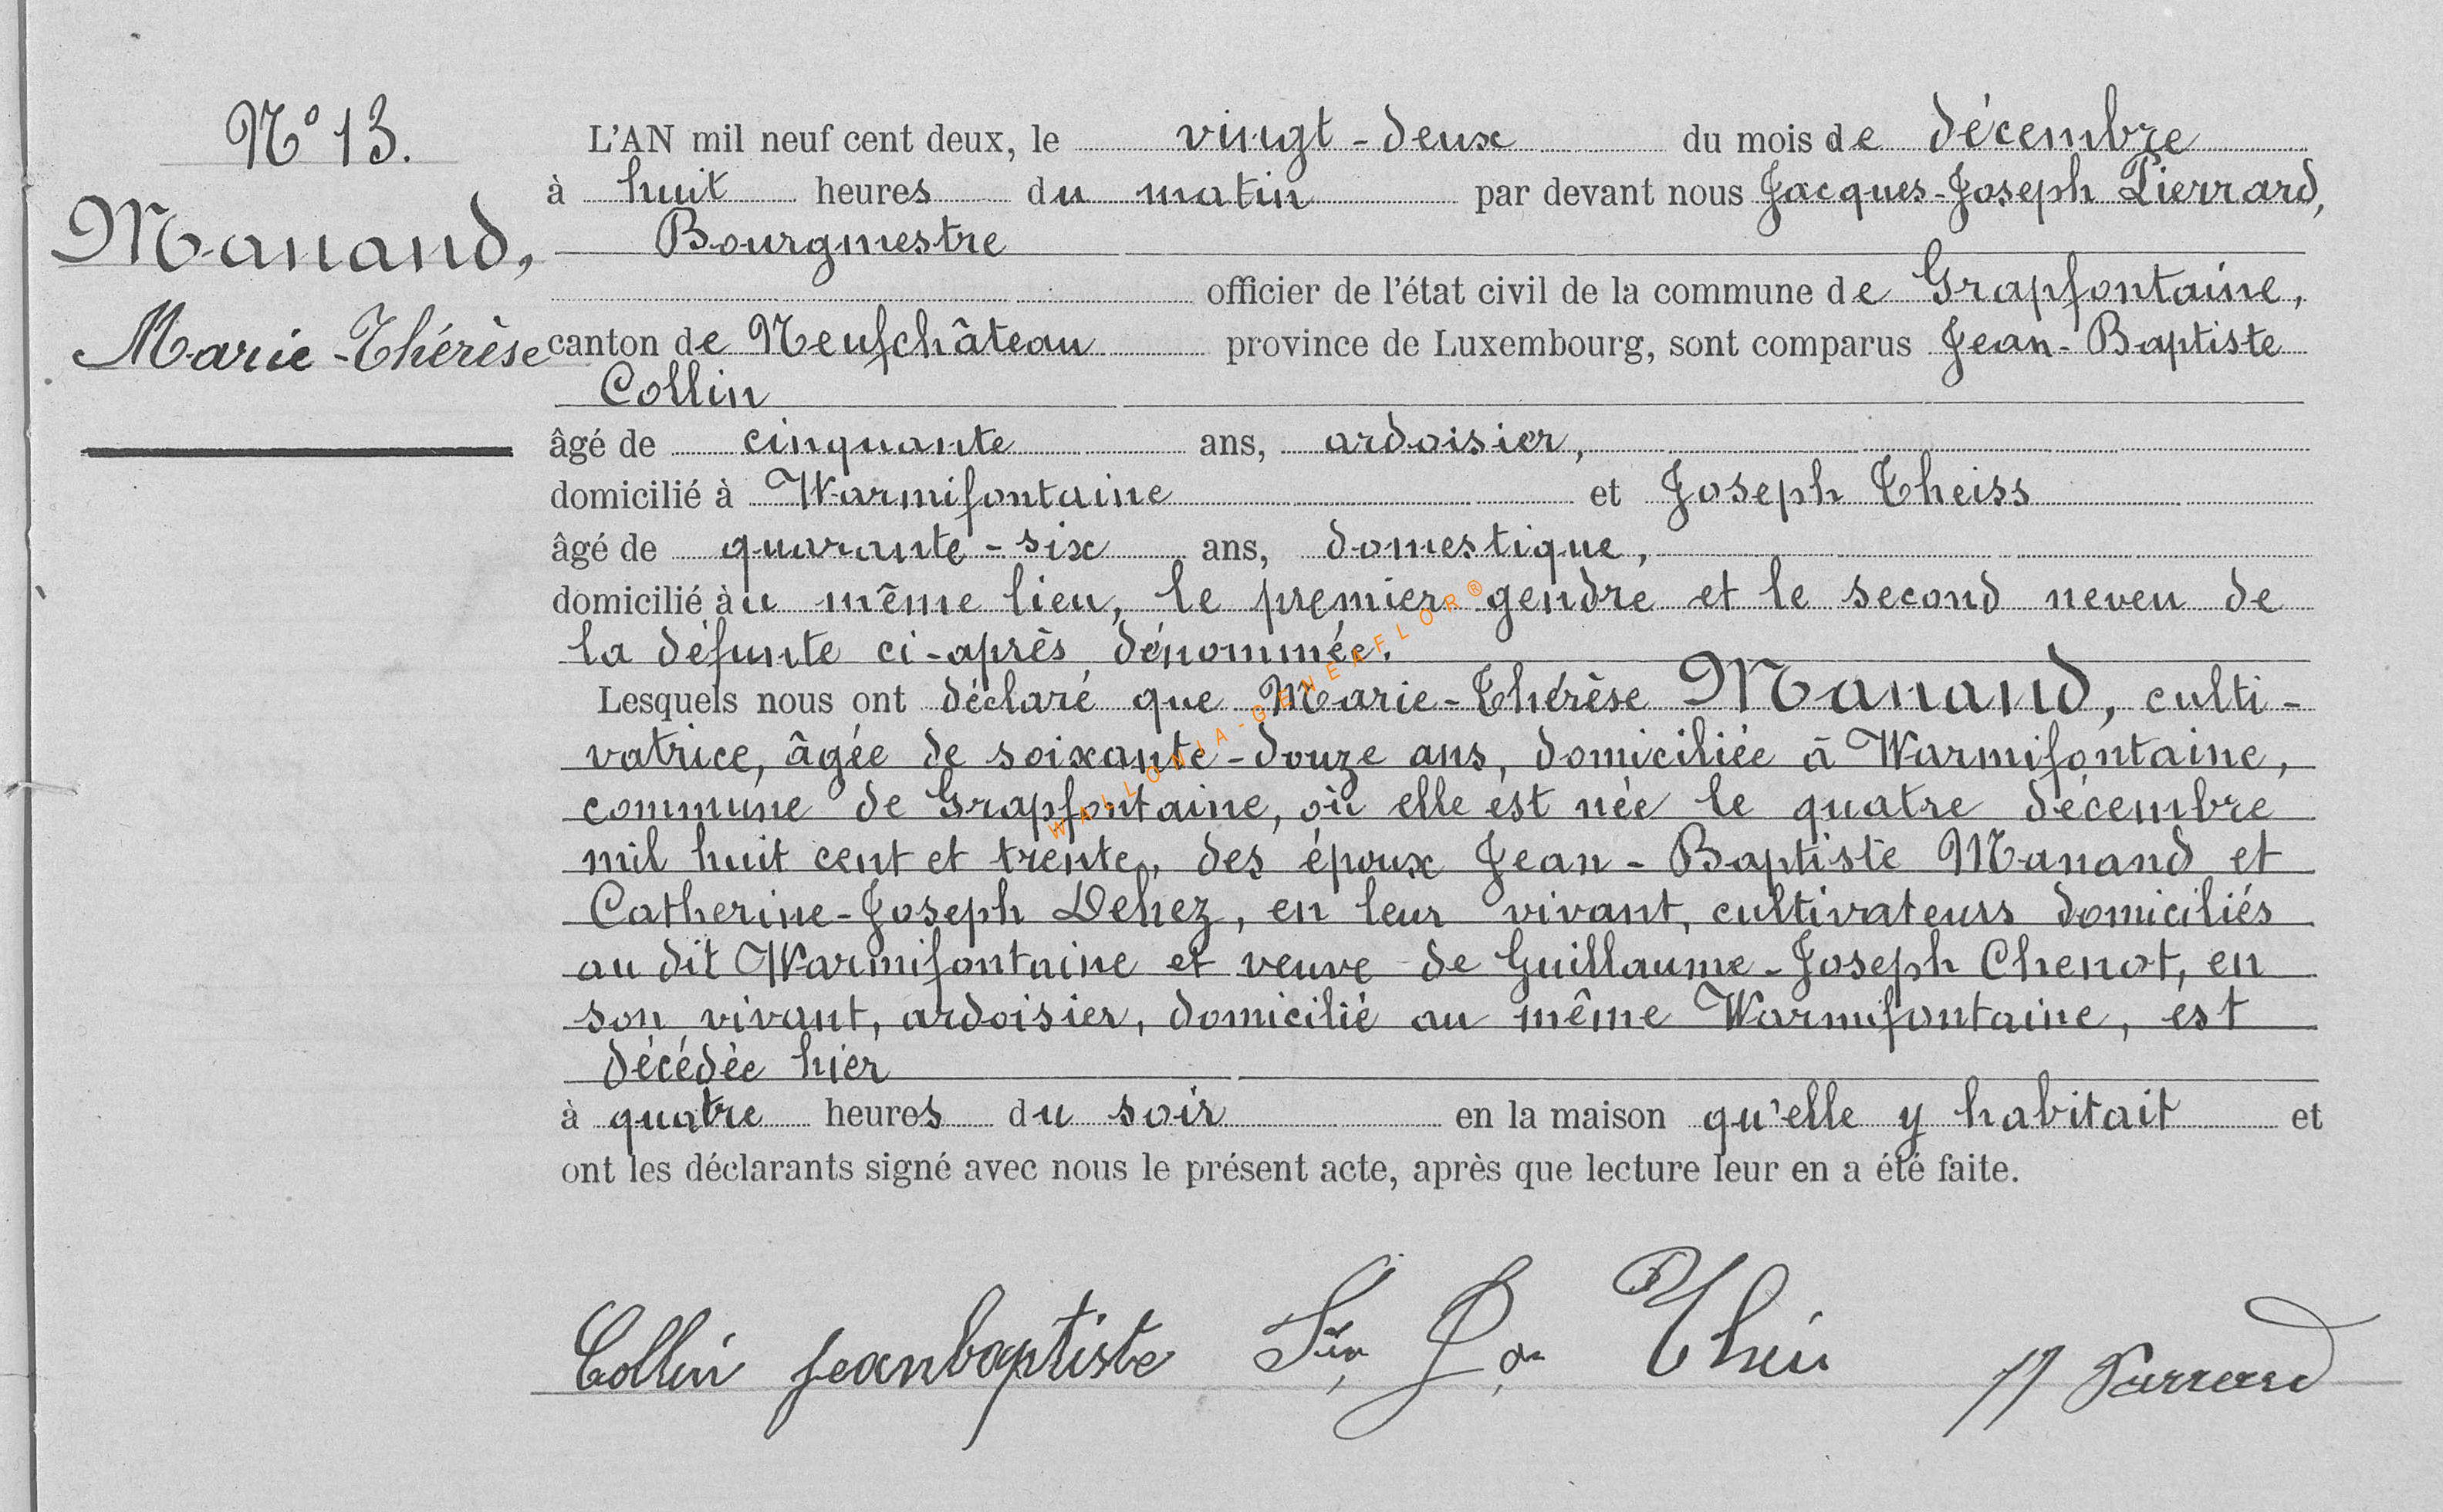 N° 13.
Manand,
Marie-Thérèse
L'AN mil neuf cent deux, le vingt-deux du mois de décembre
à huit heures du matin par devant nous Jacques-Joseph Pierrard,
Bourgmestre
officier de l'état civil de la commune de Grapfontaine,
canton de Neufchâteau province de Luxembourg, sont comparus Jean-Baptiste
Collin
âgé de cinquante ans, ardoisier,
domicilié à Warmifontaine et Joseph Theiss
âgé de quarante-six ans, domestique,
domicilié au même lieu, le premier gendre et le second neveu de
la défunte ci-après dénommée.
Lesquels nous ont déclaré que Marie-Thérèse Manand, culti-
vatrice, âgée de soixante-douze ans, domiciliée à Warmifontaine,
commune de Grapfontaine, où elle est née le quatre décembre
mil huit cent et trente, des époux Jean-Baptiste Manand et
Catherine-Joseph Dehez, en leur vivant, cultivateurs domiciliés
au dit Warmifontaine et veuve de Guillaume-Joseph Chenot, en
son vivant, ardoisier, domicilié au même Warmifontaine, est
décédée hier
à quatre heures du soir en la maison qu'elle y habitait et
ont les déclarants signé avec nous le présent acte, après que lecture leur en a été faite.
Collin jeanbaptiste
WALLONIA-GENEAFLOR®